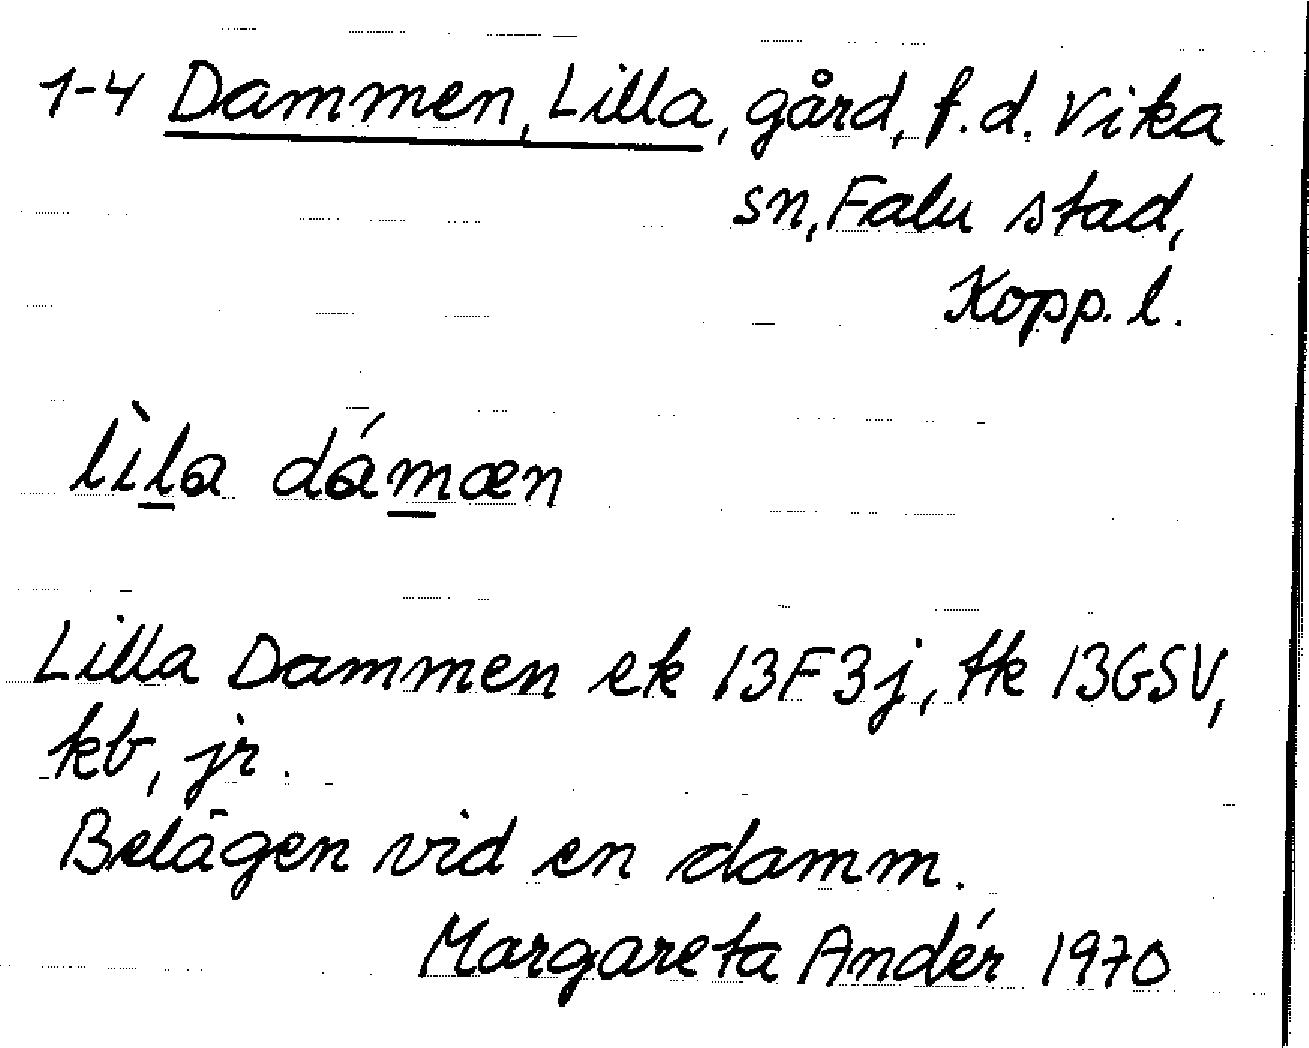 1-4 Dammen, Lilla, gård, f.d. Vika
sn, Falu stad,
Kopp. l.
lìla dámæn
Lilla Dammen ek 13F3j, tk 13GSV,
kb, jr.
Belägen vid en damm.
Margareta Andér 1970